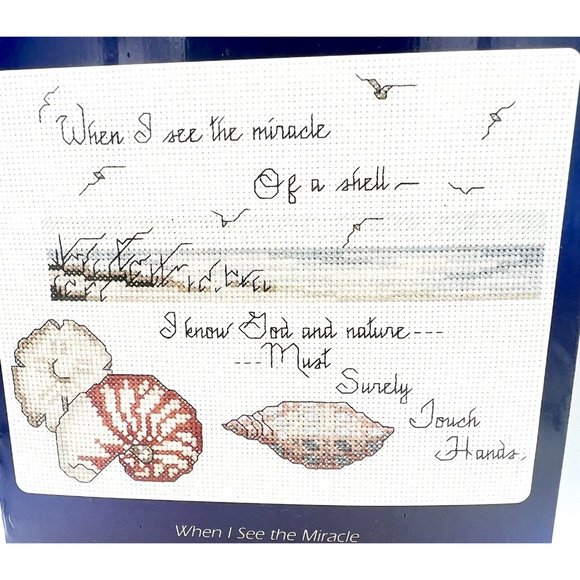 When I see the miracle
Of a shell—
I know God and nature---
---Must
Surely
Touch
Hands.
When I See the Miracle